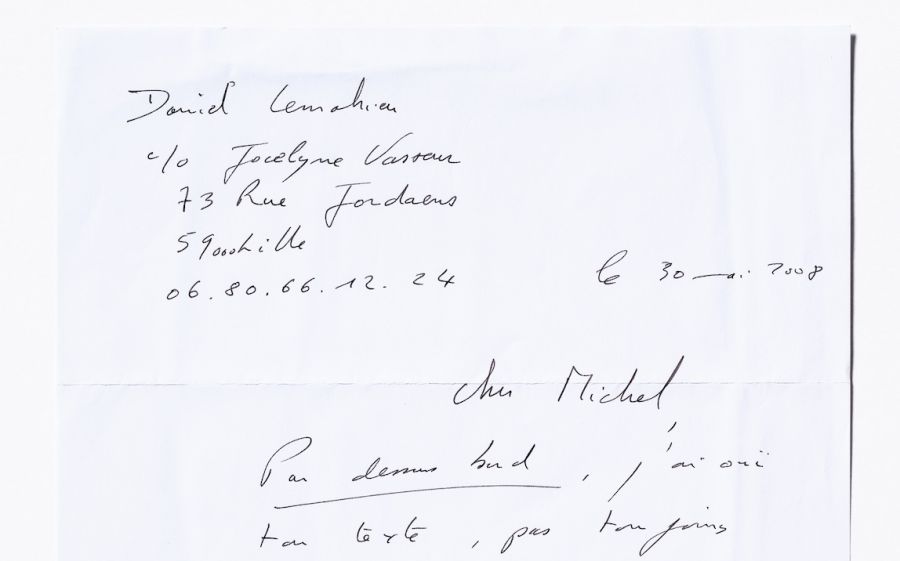 Daniel Lemahieu
c/o Jocelyne Vasseur
73 Rue Jordaens
59000 Lille
06.80.66.12.24
le 30 mai 2008
cher Michel,
Par dessus bord, j'ai ouï
ton texte, pas toujours